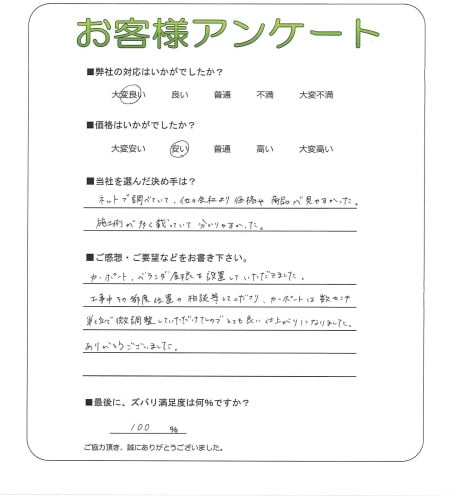 お客様アンケート
■弊社の対応はいかがでしたか？
大変良い 良い 普通 不満 大変不満
■価格はいかがでしたか？
大変安い 安い 普通 高い 大変高い
■当社を選んだ決め手は？
ネットで調べていて、他の会社より価格や商品が見やすかった。
施工例が多く載っていて分かりやすかった。
■ご感想・ご要望などをお書き下さい。
カーポート、ベランダ屋根を設置していただきました。
工事中その都度位置の相談等してくださり、カーポートは数センチ
単位で微調整していただけたのでとても良い仕上がりになりました。
ありがとうございました。
■最後に、ズバリ満足度は何%ですか？
100 %
ご協力頂き、誠にありがとうございました。